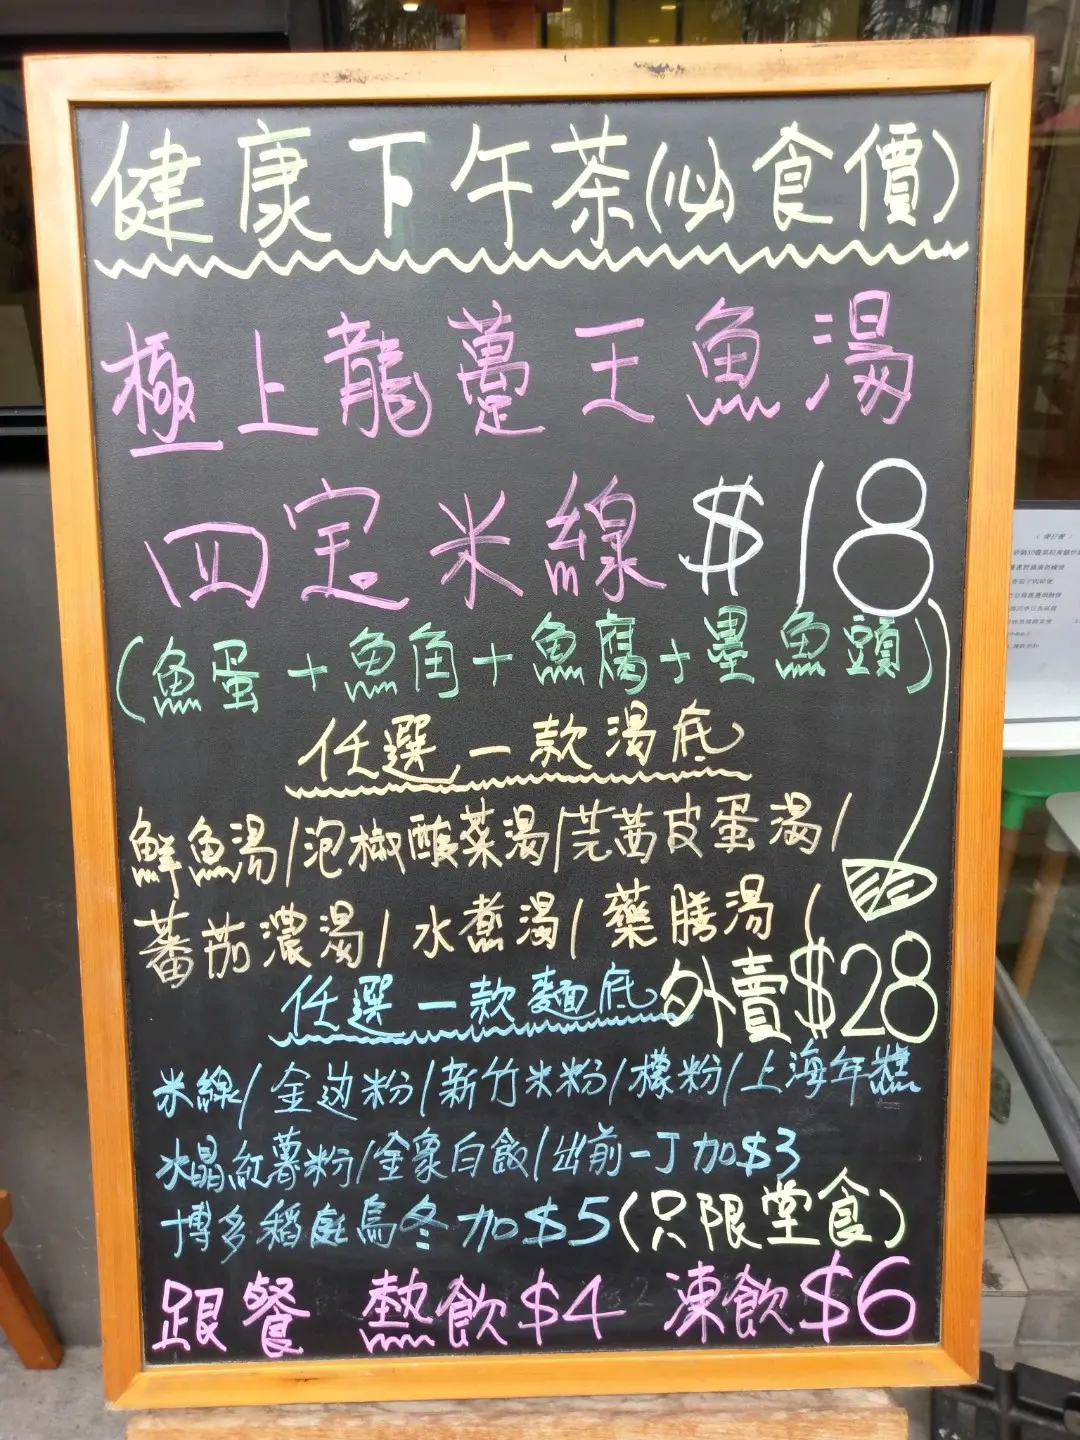 健康下午茶(必食價)
極上龍躉王魚湯
四宝米線 $18
(魚蛋+魚角+魚腐+墨魚頭)
任選一款湯底
鮮魚湯/泡椒酸菜湯/芫茜皮蛋湯/
蕃茄濃湯/水煮湯/藥膳湯/
外賣$28
任選一款麵底
米線/金边粉/新竹米粉/檬粉/上海年糕
水晶紅薯粉/金象白飯/出前一丁加$3
博多稻庭烏冬加$5(只限堂食)
跟餐 熱飲$4 凍飲$6